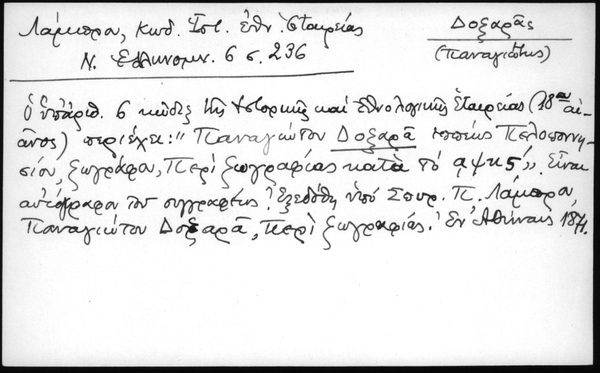 Λάμπρου, Κωδ. Ἱστ. Ἐθν. Ἑταιρείας
Ν. Ἑλληνομν. 6 σ. 236
Δοξαρᾶς
(Παναγιώτης)
Ὁ ὑπ' ἀριθ. 6 κῶδιξ τῆς Ἱστορικῆς καὶ Ἐθνολογικῆς Ἑταιρείας (18ου αἰ-
ῶνος) περιέχει: "Παναγιώτου Δοξαρᾶ ἱππέως Πελοποννη-
σίου, ζωγράφου, Περὶ ζωγραφίας κατὰ τὸ αψκς΄". Εἶναι
αὐτόγραφον τοῦ συγγραφέως. Ἐξεδόθη ὑπὸ Σπυρ. Π. Λάμπρου,
Παναγιώτου Δοξαρᾶ, Περὶ ζωγραφίας. Ἐν Ἀθήναις 1871.